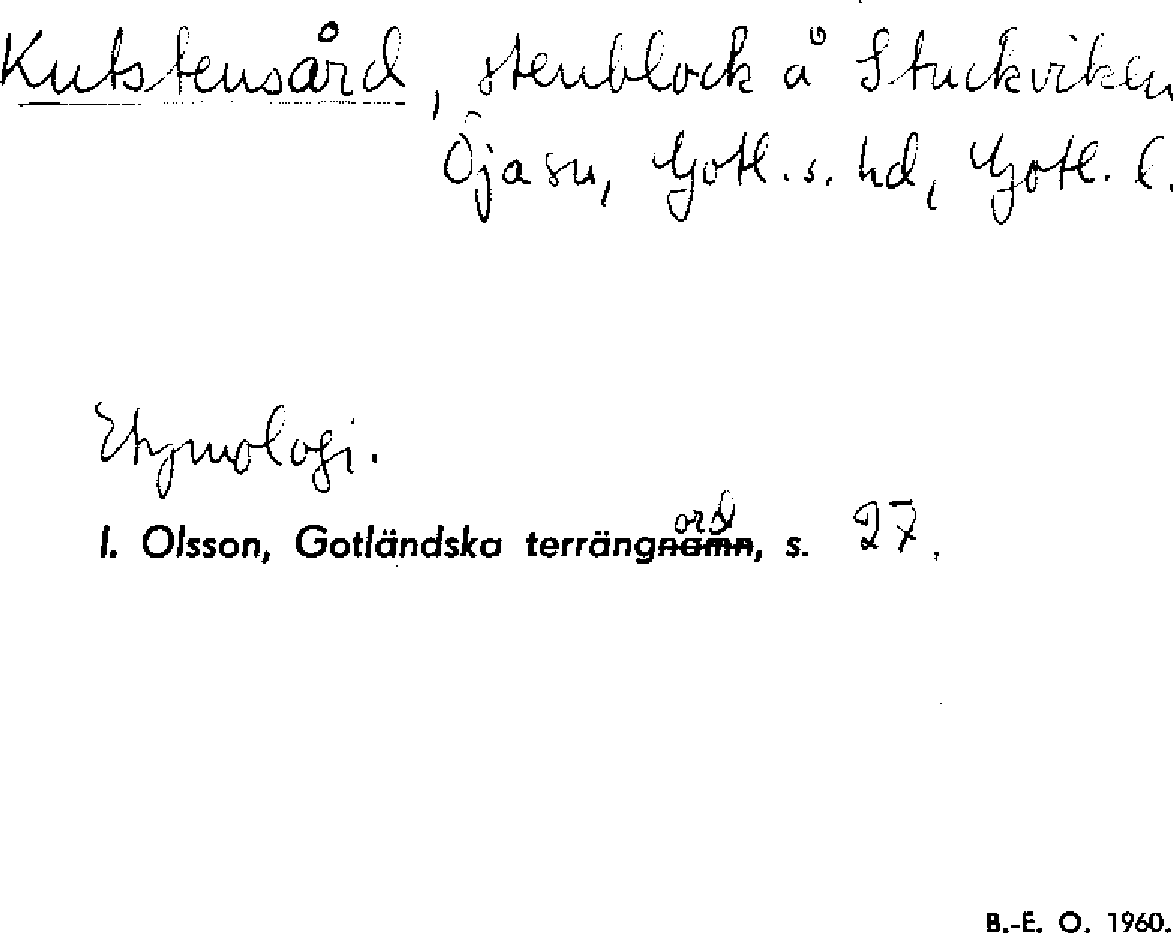 Kutstensård, stenblock å Stuckviken
Öja sn, Gotl. s. hd, Gotl. l.
Etymologi.
I. Olsson, Gotländska terrängnamnord, s. 27.
B.-E. O. 1960.